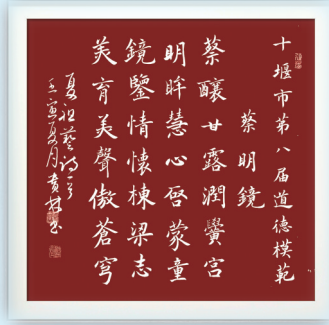 十堰市第八届道德模範
蔡明鏡
蔡釀甘露潤黌宮
明眸慧心啓蒙童
鏡鑒情懷棟梁志
美育美聲傲蒼穹
夏祖藝詩
壬寅夏月書